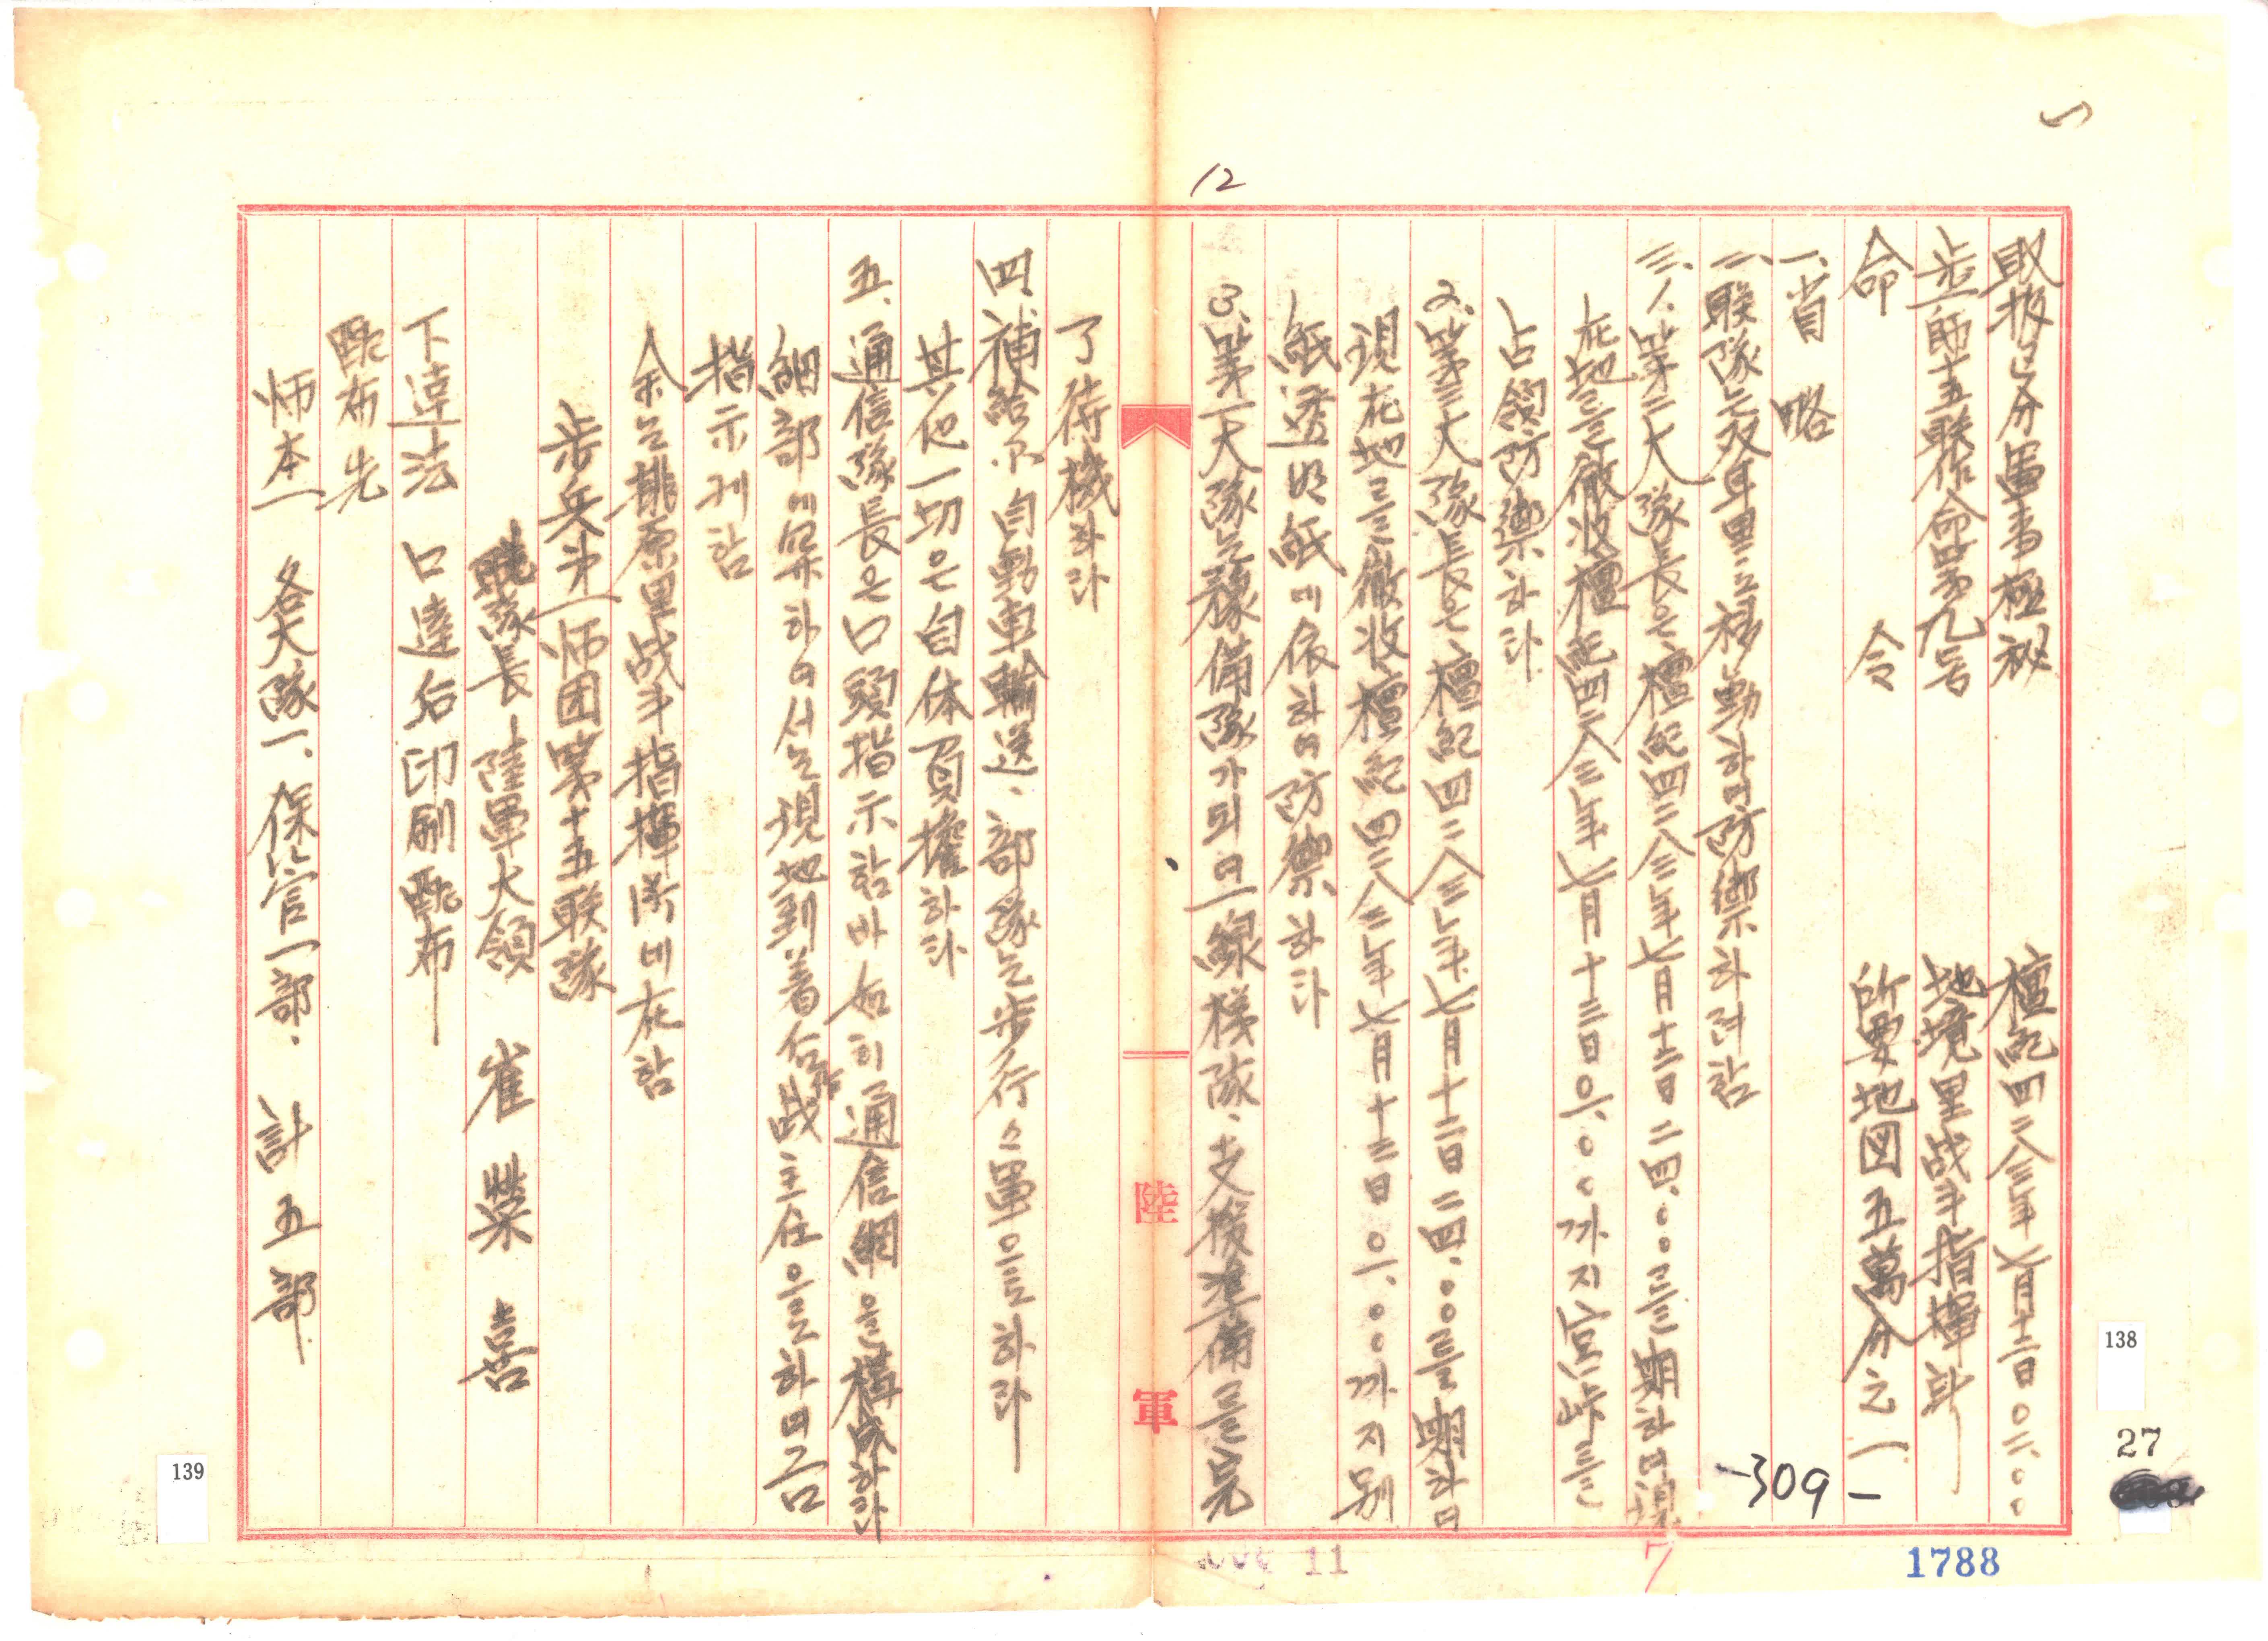 取扱区分 軍事極秘 檀紀四二八三年七月十二日〇二.〇〇
步一師十五聯作命第九号 地境里战斗指揮所
命 令 所要地図五萬分之一
一、省 略
二、联隊는 双耳里로 移動하여 防禦하려함
三、1. 第二大隊長은 檀紀四二八三年七月十二日二四.〇〇로 期하여 現
在地를 徹收 檀紀四二八三年七月十三日〇一.〇〇까지 峠를
占領防禦하라
2. 第三大隊長은 檀紀四二八三年七月十二日二四.〇〇를 期하여
現在地를 徹收 檀紀四二八三年七月十三日〇一.〇〇까지 別
紙透明紙에 依하여 防禦하라
3. 第一大隊는 豫備隊가 되여 一線 梯隊、支援準備를 完
了待機하라
四、補給은 自動車輸送、部隊는 步行 으로 하라
其他一切은 自体負擔하라
五、通信隊長은 口頭指示한바 如히 通信網을 構成하라
細部에 関하여서는 現地到着后 作战主任으로 하여금
指示케함
余는 桃原里战斗指揮所에 在함
步兵第一师团第十五联隊
聯隊長 陸軍大領 崔 榮 喜
下達法 口達后印刷配布
配布先
师本一 各大隊一、保管一部. 計 五 部
12
陸 軍
-309-
138
139
27
1788
7
11